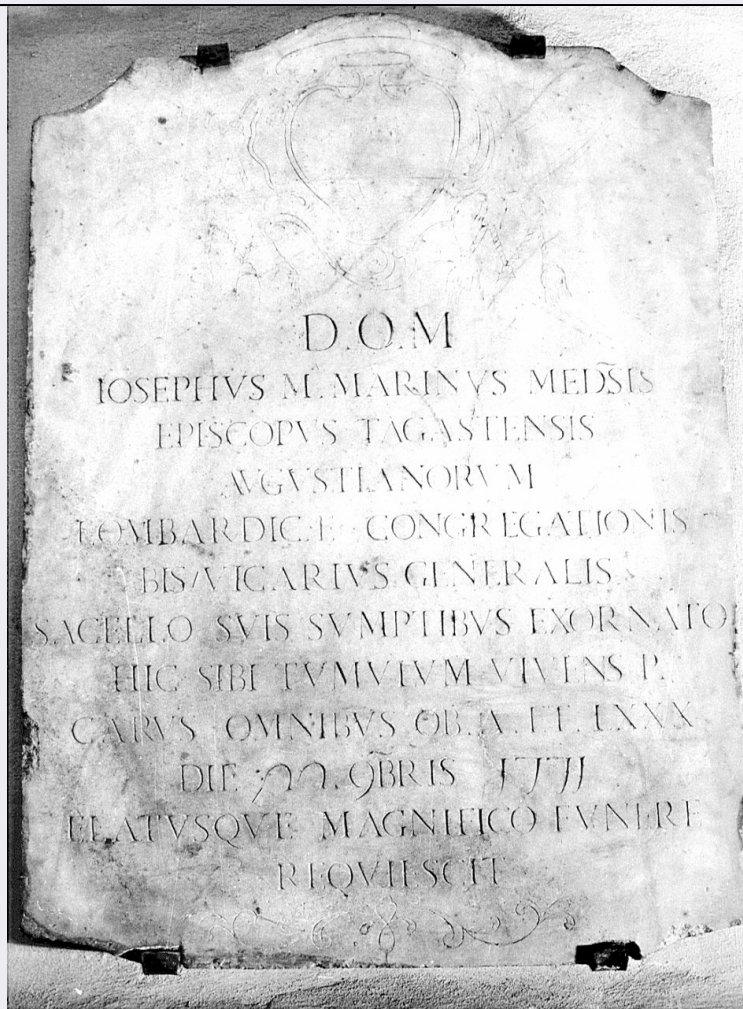 D.O.M
IOSEPHVS M. MARINVS MEDS̃IS
EPISCOPVS TAGASTENSIS
AVGVSTIANORVM
LOMBARDICÆ CONGREGATIONIS
BIS VICARIVS GENERALIS
SACELLO SVIS SVMPTIBVS EXORNATO
HIC SIBI TVMVLVM VIVENS P.
CARVS OMNIBVS OB. ÆT. LXXX
DIE 22. 9B̃RIS
ELATVSQVE MAGNIFICO FVNERE
REQVIESCIT